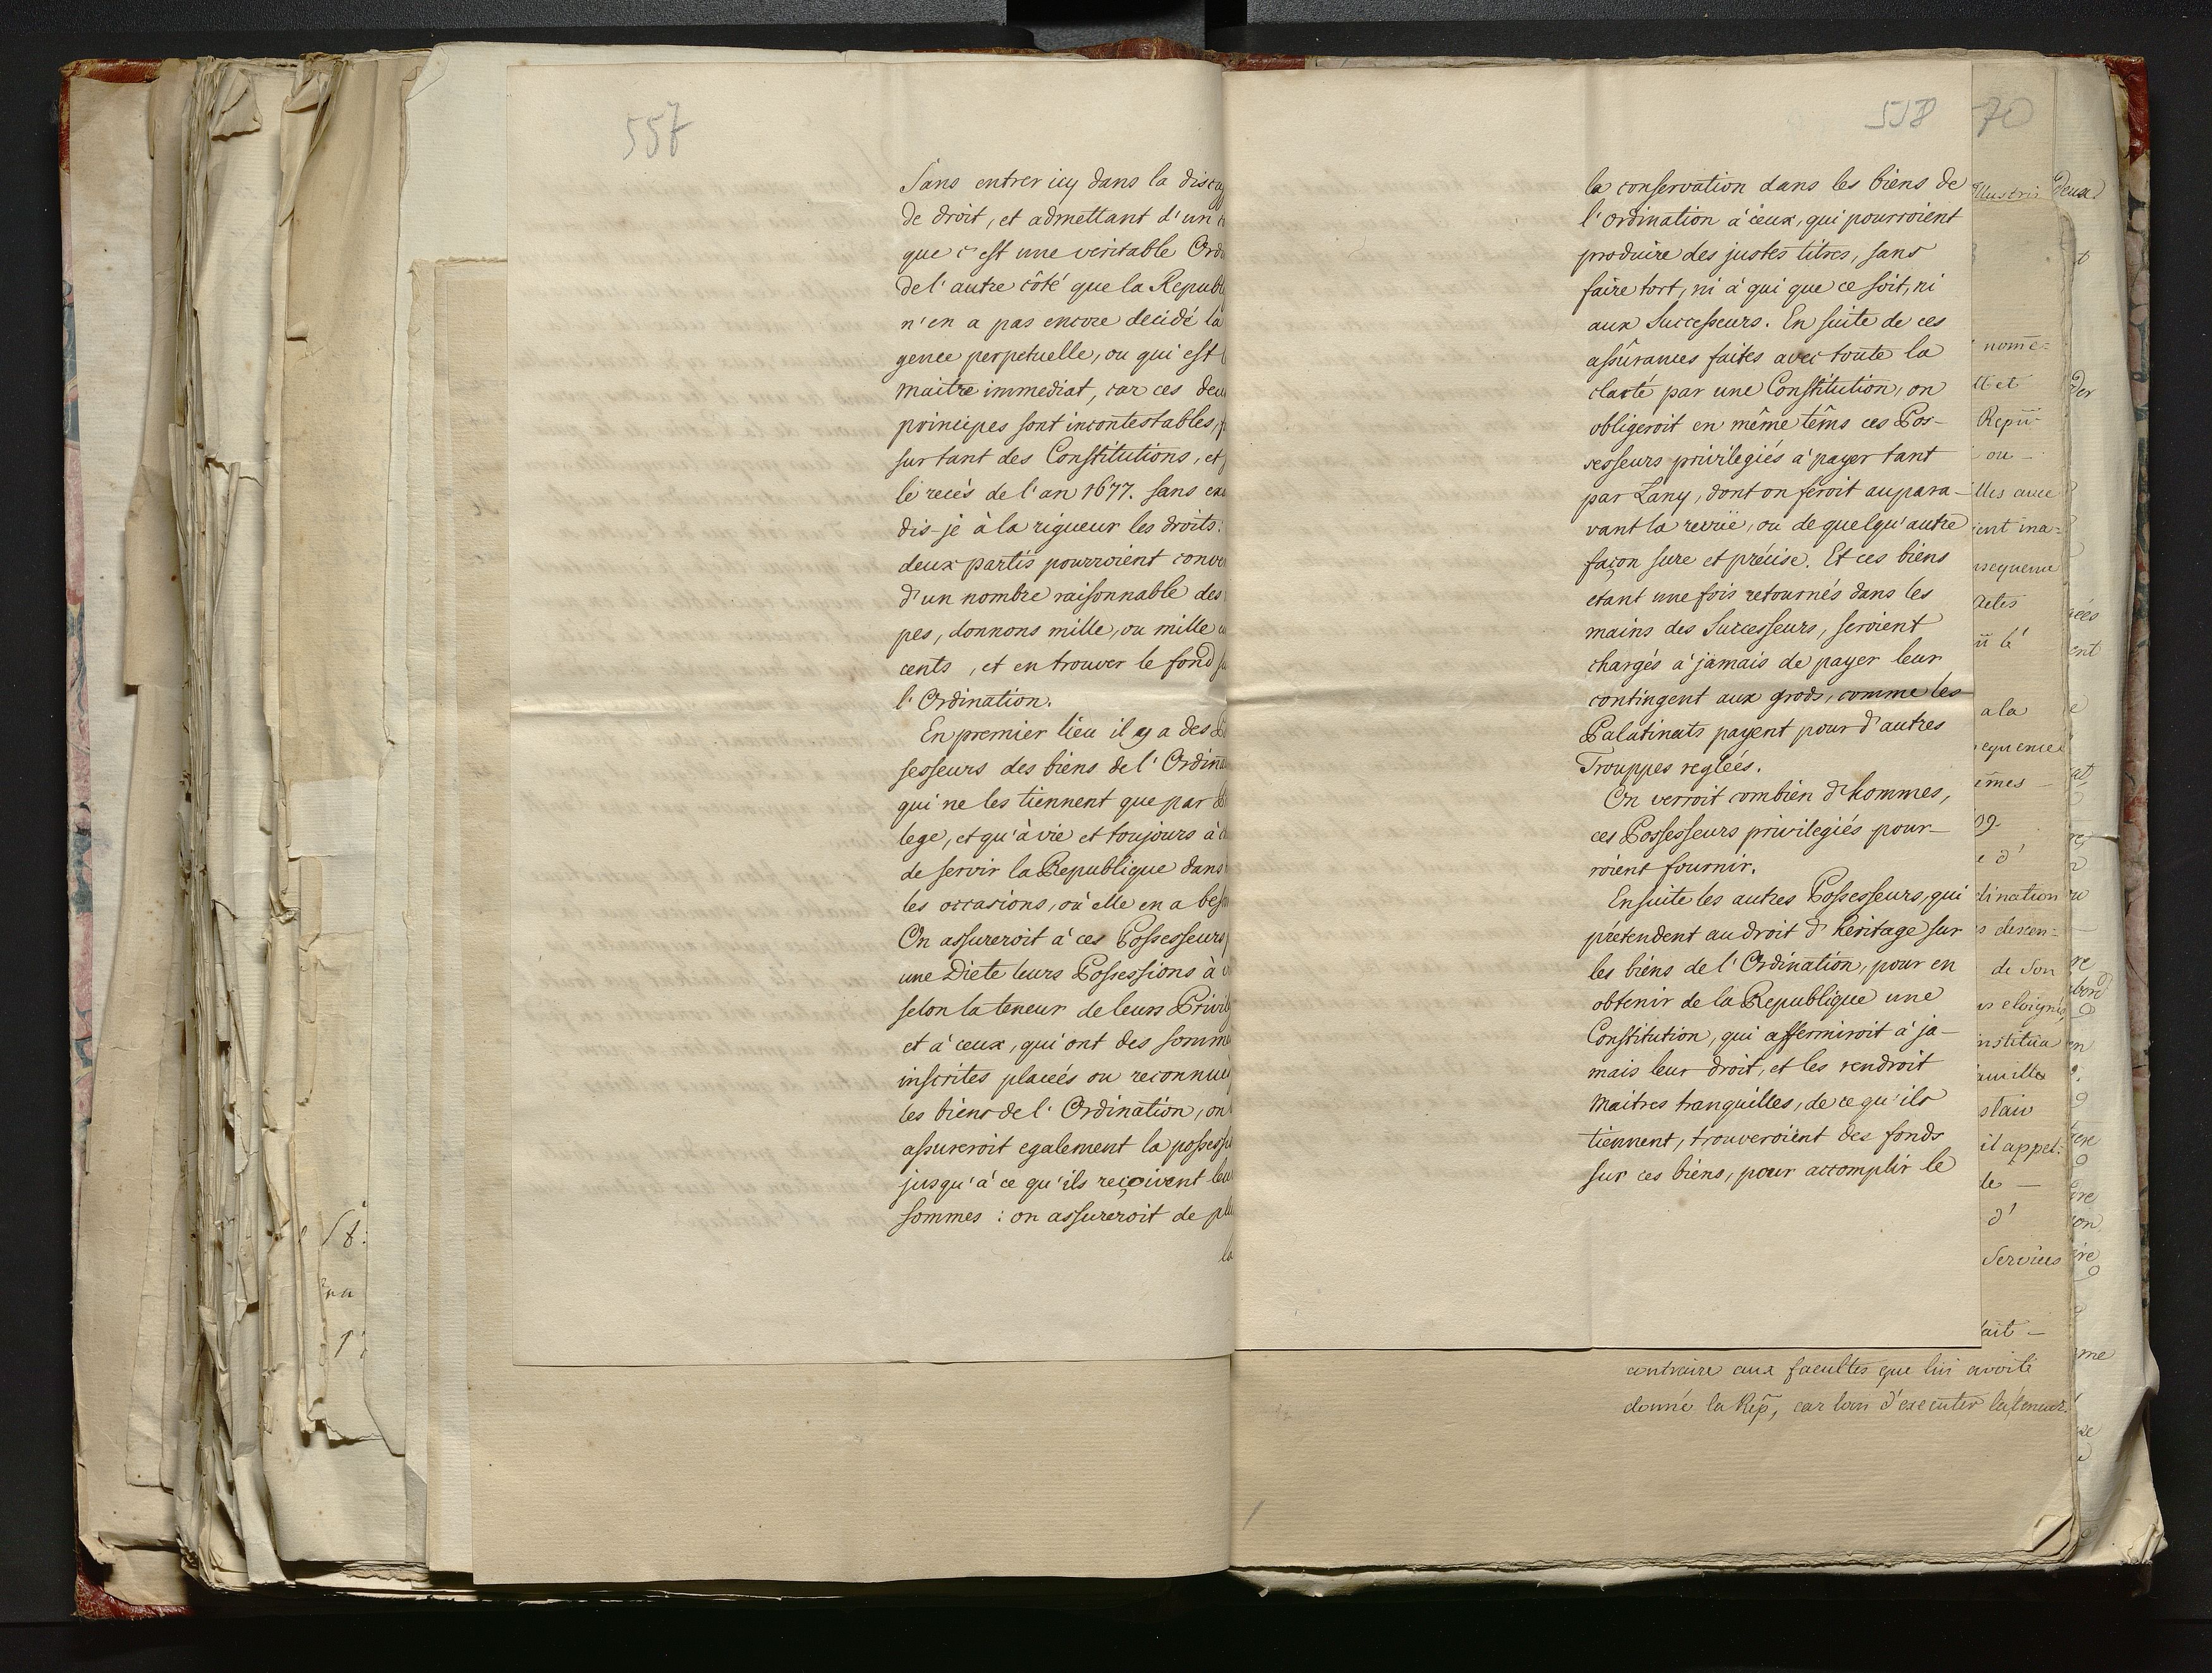 557
Sans entrer icy dans la
de droit, et admettant d'un
que c'est une veritable
de l'autre côté que la
n'en a pas encore decidé la
gence perpetuelle, ou qui est
maitre immediat, car ces
principes sont incontestables,
sur tant des Constitutions, et
le recés de l'an 1677. sans
dis-je à la rigueur les droits
deux partis pourroient
d'un nombre raisonnable des
pes, donnons mille, ou mille
cents, et en trouver le fond
l'Ordination.
En premier lieu il y a des
sesseurs des biens de l'
qui ne les tiennent que par
lege, et qu'à vie et toujours à
de servir la Republique dans
les occasions, où elle en a
On assureroit à ces Possesseurs
une Diete leurs Possessions à
selon la teneur de leurs
et à ceux, qui ont des
inscrites placés ou
les biens de l'Ordination, on
assureroit egalement la
jusqu'à ce qu'ils reçoivent
sommes : on assureroit de
la
558
la conservation dans les biens de
l'ordination à ceux, qui pourroient
produire des justes titres, sans
faire tort, ni à qui que ce soit, ni
aux Successeurs. En suite de ces
assûrances faites avec toute la
clarté par une Constitution, on
obligeroit en même têms ces Pos-
sesseurs privilegiés à payer tant
par Lany, dont on feroit aupara-
vant la revüe, ou de quelqu'autre
façon sure et précise. Et ces biens
etant une fois retournés dans les
mains des Successeurs, seroient
chargés à jamais de payer leur
contingent aux grods, comme les
Palatinats payent pour d'autres
Trouppes reglées.
On verroit combien d'hommes,
ces Possesseurs privilegiés pour-
roient fournir.
Ensuite les autres Possesseurs, qui
prétendent au droit d'héritage sur
les biens de l'Ordination, pour en
obtenir de la Republique une
Constitution, qui affermiroit à ja-
mais leur droit, et les rendroit
maitres tranquilles, de ce qu'ils
tiennent, trouveroient des fonds
sur ces biens, pour accomplir le
70
nome=
et
ou -
avec
ina=
Actes
a la
d'
de Son
il appel:
le -
d'
Services
contraire aux facultes que lui avoite
donné la Rep, car loin d'executer la teneur